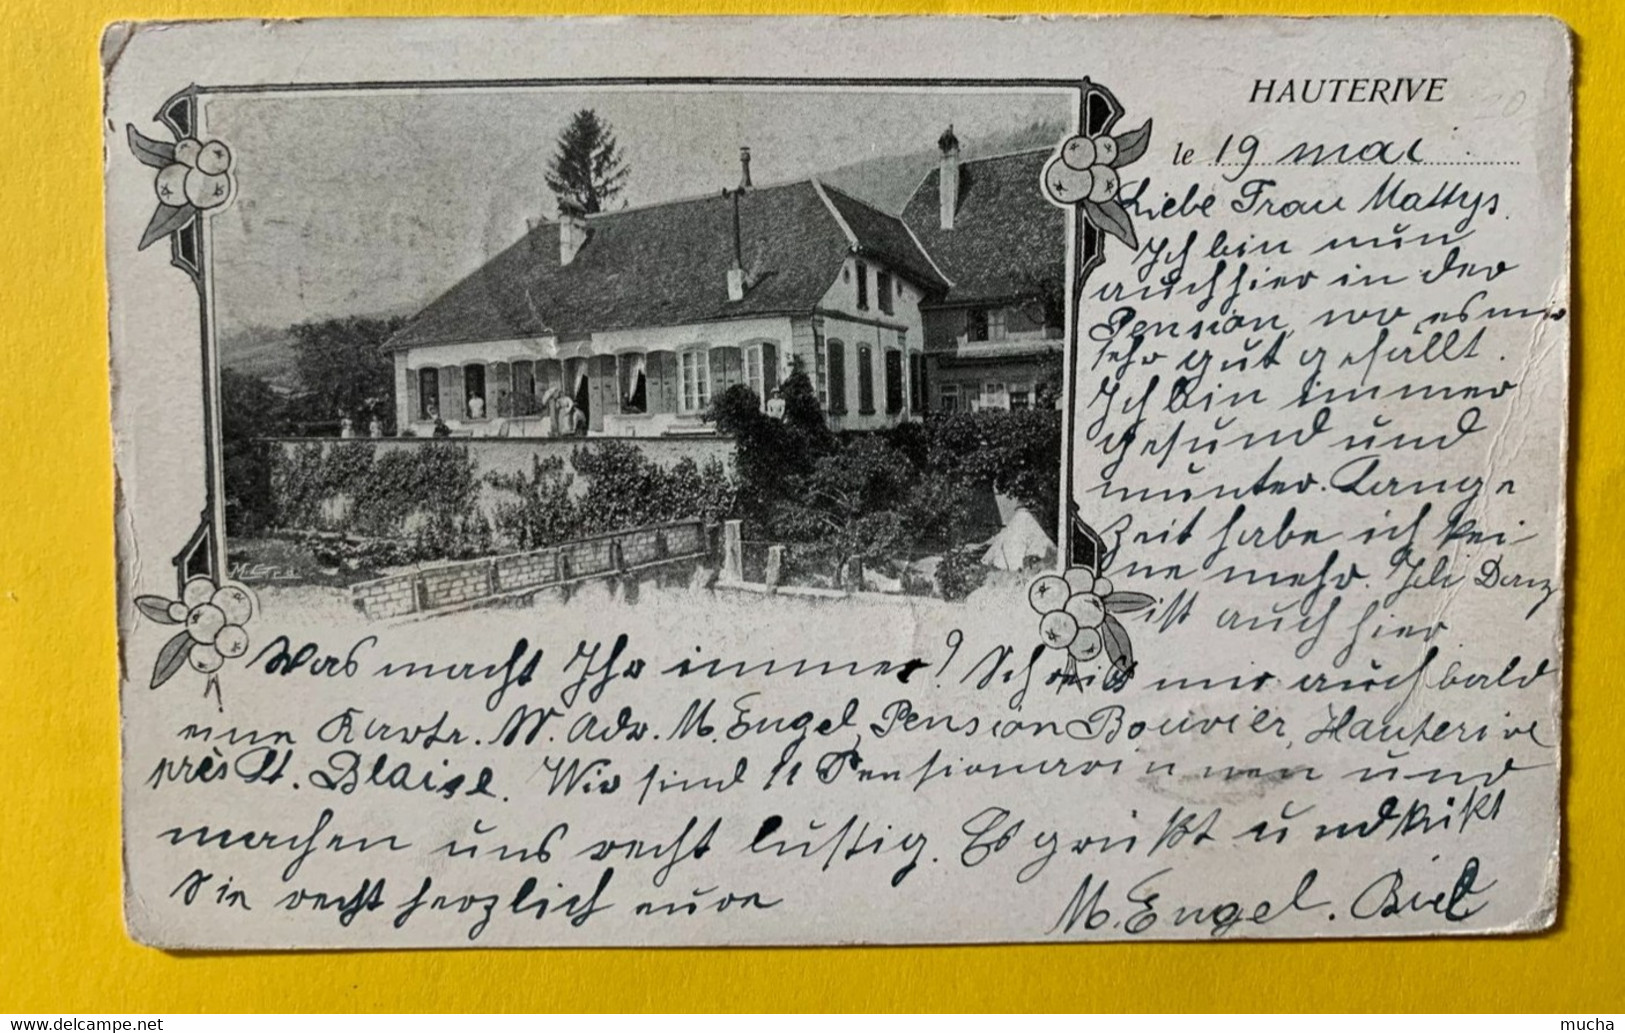 HAUTERIVE
le 19 mai
Liebe Frau Mattys.
Ich bin nun
auch hier in der
Pension, wo es mir
sehr gut gefällt.
Ich bin immer
gesund und
munter. Lange
Zeit habe ich kei-
ne mehr. Danz
ist auch hier
Was macht Ihr immer? Schreibt mir auch bald
eine Karte. M. Adr. M. Engel, Pension Bouvier, Hauterive
près St. Blaise. Wir sind 11 Pensionärinnen und
machen uns recht lustig. Es grüßt und küßt
Sie recht herzlich eure
M. Engel. Biel
delcampe.net
mucha